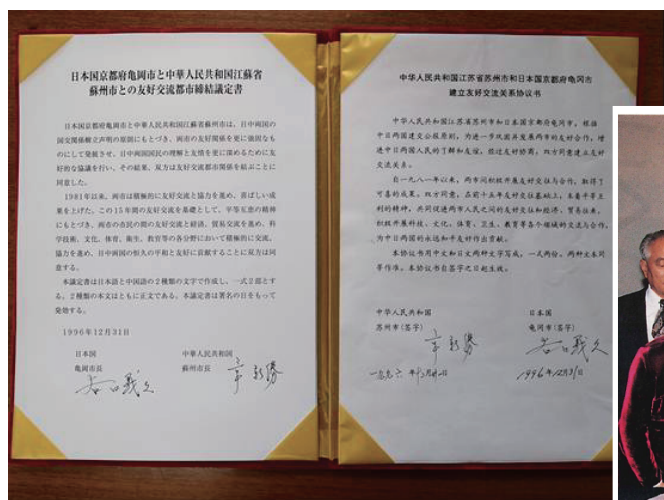 日本国京都府亀岡市と中華人民共和国江蘇省
蘇州市との友好交流都市締結議定書
日本国京都府亀岡市と中華人民共和国江蘇省蘇州市は、日中両国の
国交関係樹立声明の原則にもとづき、両市の友好関係を更に強固なも
のにして発展させ、日中両国国民の理解と友情を更に深めるために友
好的な協議を行い、その結果、双方は友好交流都市関係を結ぶことに
同意した。
1981年以来、両市は積極的に友好交流と協力を進め、喜ばしい成
果を上げた。この15年間の友好交流を基礎として、平等互恵の精神
にもとづき、両市の市民の間の友好交流と経済、貿易交流を進め、科
学技術、文化、体育、衛生、教育等の各分野において積極的に交流、
協力を進め、日中両国の恒久の平和と友好に貢献することに双方は同
意する。
本議定書は日本語と中国語の2種類の文字で作成し、一式2部とす
る。2種類の本文はともに正文である。本議定書は署名の日をもって
発効する。
1996年12月31日
日本国 中華人民共和国
亀岡市長 蘇州市長
谷口義久 章新勝
中华人民共和国江苏省苏州市和日本国京都府龟冈市
建立友好交流关系协议书
中华人民共和国江苏省苏州市和日本国京都府龟冈市，根据
中日两国建交公报原则，为进一步巩固并发展两市的友好合作，增
进中日两国人民的了解和友谊，经过友好协商，双方同意建立友好
交流关系。
自一九八一年以来，两市间积极开展友好交往与合作，取得了
可喜的成果。双方同意，在前十五年友好交往基础上，本着平等互
利的精神，共同促进两市人民之间的友好交往和经济、贸易往来，
积极开展科技、文化、体育、卫生、教育等各个领域的交流与合作，
为中日两国的永远和平友好作出贡献。
本协议书用中文和日文两种文字写成，一式两份，两种文本同
等作准。本协议书自签字之日起生效。
中华人民共和国 日本国
苏州市(签字) 龟冈市(签字)
章新胜 谷口義久
一九九六年十二月卅一日 1996年12月31日